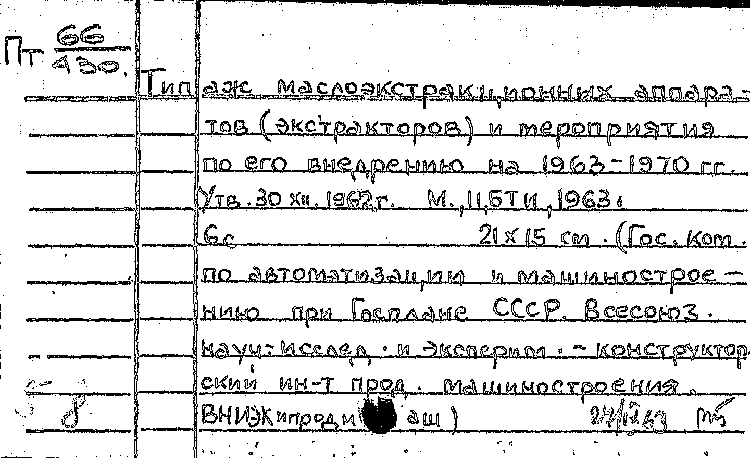 Пт 66
430.
Типаж маслоэкстракционных аппара-
тов (экстракторов) и мероприятия
по его внедрению на 1963-1970 гг.
Утв. 30 XII. 1962г. М., ЦБТИ, 1963.
6с 21х15 см. (Гос. ком.
по автоматизации и машинострое-
нию при Госплане СССР. Всесоюз.
науч.-исслед. и эксперим.-конструктор
ский ин-т прод. машиностроения.
8 ВНИЭКипродмаш)